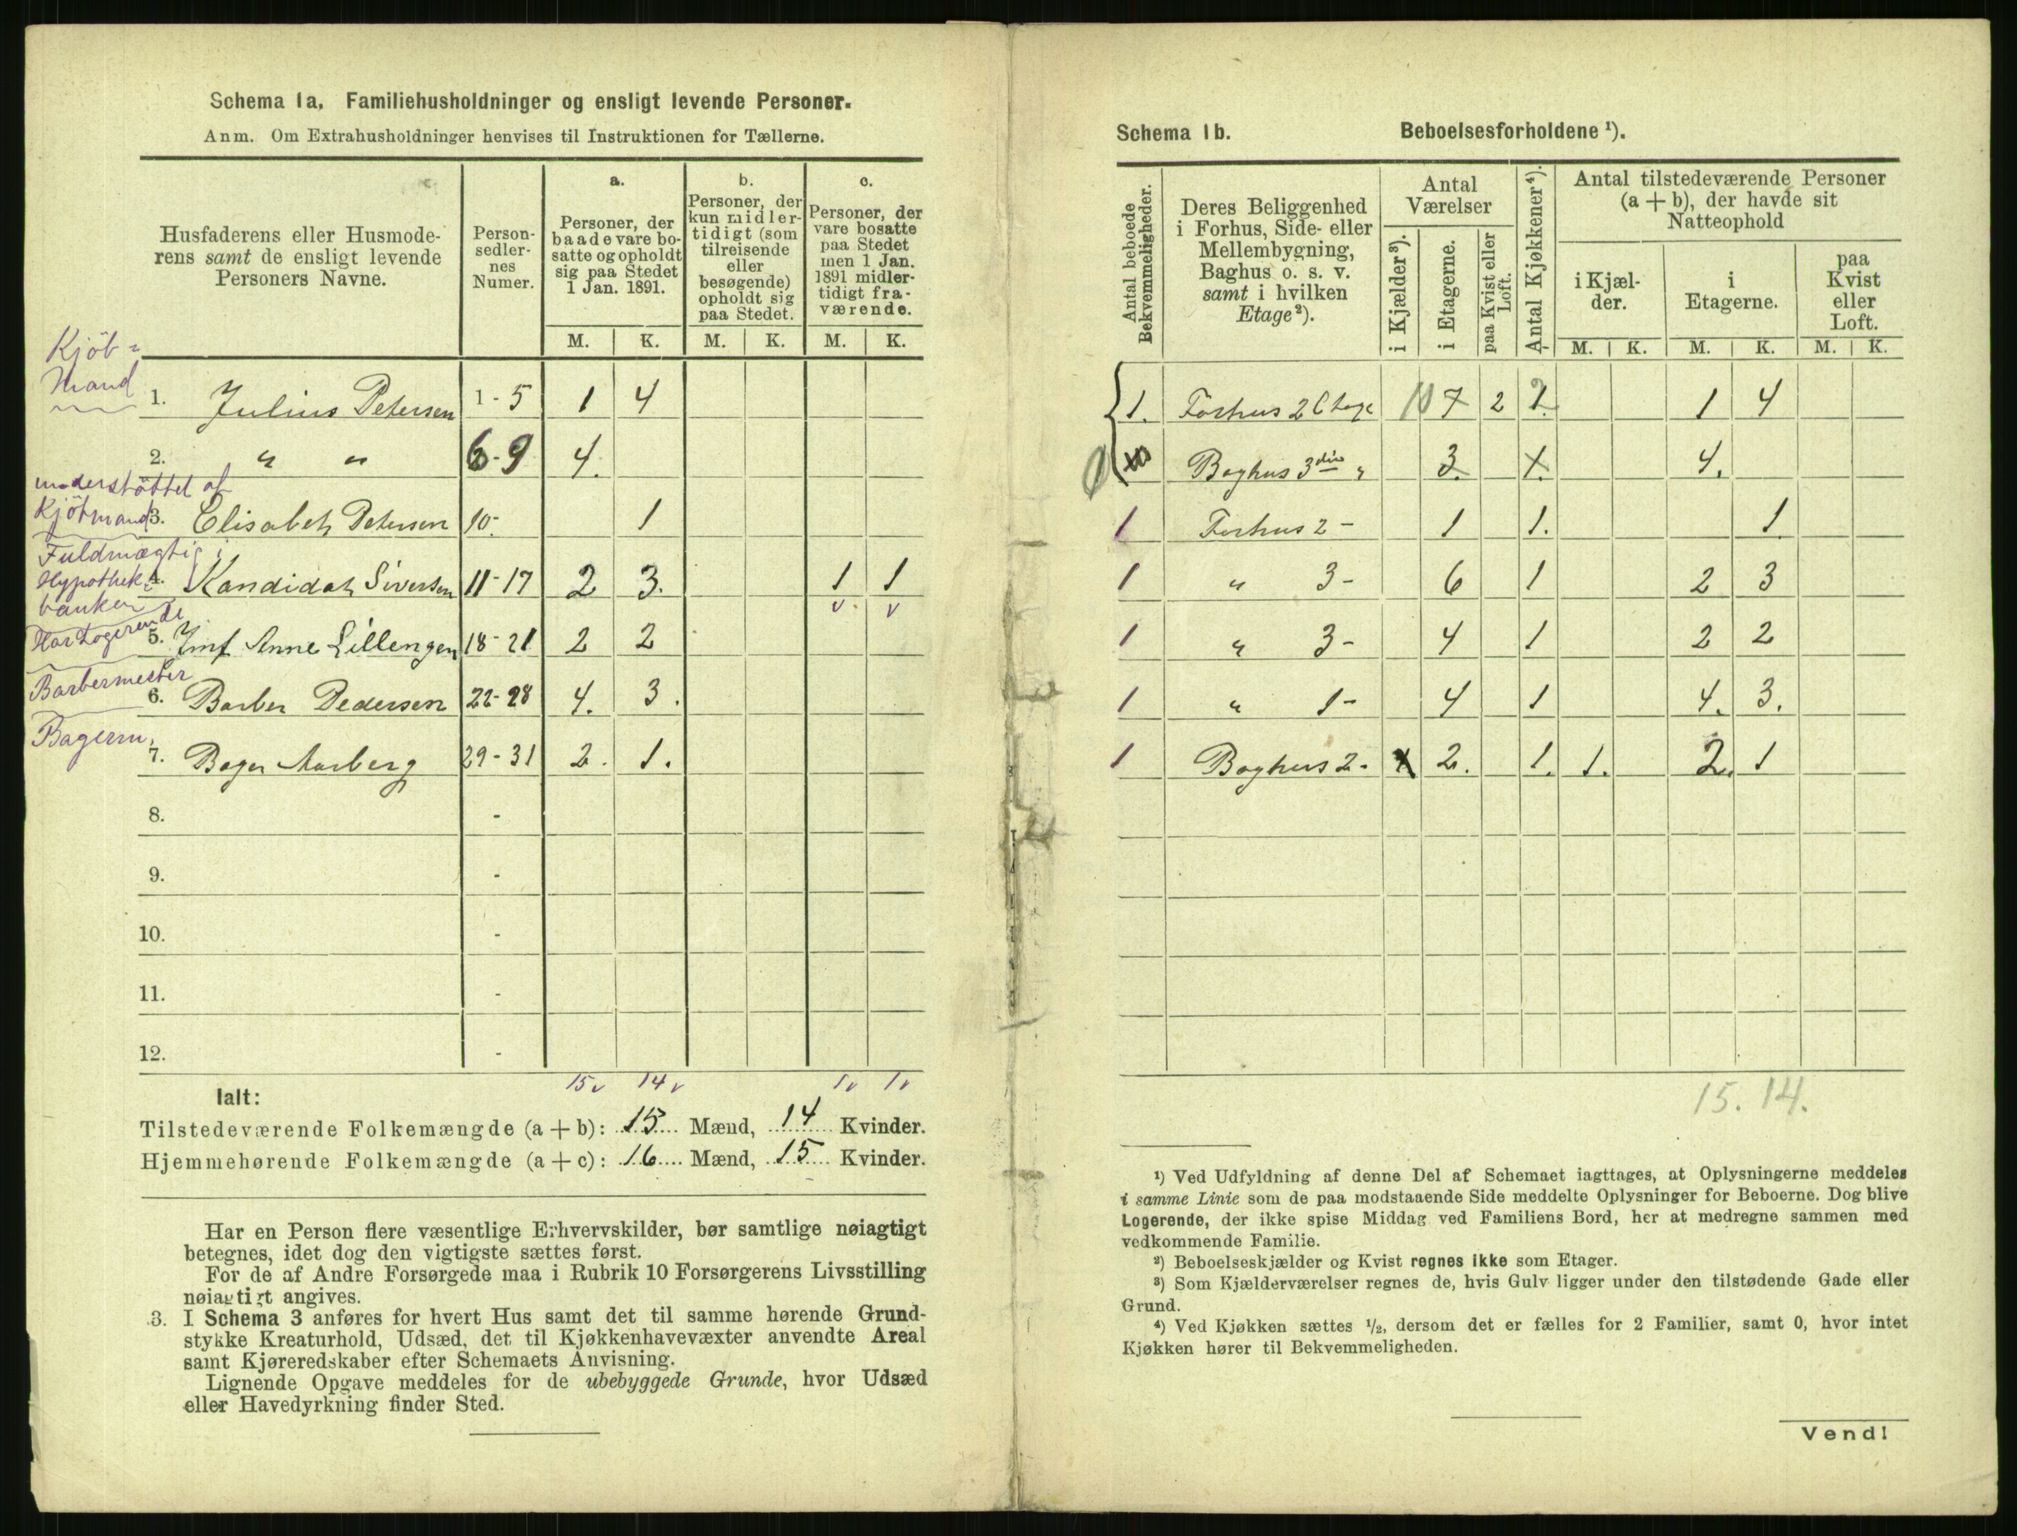 Schema 1a. Familiehusholdninger og ensligt levende Personer.
Anm. Om Extrahusholdninger henvises til Instruktionen for Tællerne.
Husfaderens eller Husmode-
rens samt de ensligt levende
Personers Navne.
Person-
sedler-
nes
Numer.
a.
Personer, der
baade vare bo-
satte og opholdt
sig paa Stedet
1 Jan. 1891.
b.
Personer, der
kun midler-
tidigt (som
tilreisende
eller
besøgende)
opholdt sig
paa Stedet.
c.
Personer, der
vare bosatte
paa Stedet
men 1 Jan.
1891 midler-
tidigt fra-
værende.
M. K. M. K. M. K.
Kjöb-
mand
1. Julius Petersen 1-5 1 4
2. " " 6-9 4.
understöttet af
Kjöbmand
3. Elisabeth Petersen 10- 1
Fuldmægtig i
Hypothek-
banken
4. Kandidat Siversen 11-17 2 3. 1 1
v. v
Har Logerende
5. Jmf Anne Lillengen 18-21 2 2
Barbermester
6. Barber Pedersen 22-28 4. 3.
Bagerm.
7. Bager Aarberg 29-31 2. 1.
8. -
9. -
10. -
11. -
12. -
15v 14v 1v 1v
Ialt:
Tilstedeværende Folkemængde (a + b): 15 Mænd, 14 Kvinder.
Hjemmehørende Folkemængde (a + c): 16 Mænd, 15 Kvinder.
Har en Person flere væsentlige Erhvervskilder, bør samtlige nøiagtigt
betegnes, idet dog den vigtigste sættes først.
For de af Andre Forsørgede maa i Rubrik 10 Forsørgerens Livsstilling
nøiagtigt angives.
3. I Schema 3 anføres for hvert Hus samt det til samme hørende Grund-
stykke Kreaturhold, Udsæd, det til Kjøkkenhavevæxter anvendte Areal
samt Kjøreredskaber efter Schemaets Anvisning.
Lignende Opgave meddeles for de ubebyggede Grunde, hvor Udsæd
eller Havedyrkning finder Sted.
Schema 1b. Beboelsesforholdene ¹).
Antal beboede
Bekvemmeligheder.
Deres Beliggenhed
i Forhus, Side- eller
Mellembygning,
Baghus o. s. v.
samt i hvilken
Etage²).
Antal
Værelser
i Kjælder³).
i Etagerne.
paa Kvist eller
Loft.
Antal Kjøkkener⁴).
Antal tilstedeværende Personer
(a + b), der havde sit
Natteophold
i Kjæl-
der.
i
Etagerne.
paa
Kvist
eller
Loft.
M. K. M. K. M. K.
1. Forhus 2 Etage 10 7 2 2 1 4
Baghus 3die " 3. 1. 4.
1 Forhus 2 - 1 1. 1.
1 " 3 - 6 1 2 3
1 " 3 - 4 1 2 2
1 " 1 - 4 1 4. 3.
1 Baghus 2 - x 2. 1. 1. 2. 1
15. 14.
¹) Ved Udfyldning af denne Del af Schemaet iagttages, at Oplysningerne meddeles
i samme Linie som de paa modstaaende Side meddelte Oplysninger for Beboerne. Dog blive
Logerende, der ikke spise Middag ved Familiens Bord, her at medregne sammen med
vedkommende Familie.
²) Beboelseskjælder og Kvist regnes ikke som Etager.
³) Som Kjælderværelser regnes de, hvis Gulv ligger under den tilstødende Gade eller
Grund.
⁴) Ved Kjøkken sættes ½, dersom det er fælles for 2 Familier, samt 0, hvor intet
Kjøkken hører til Bekvemmeligheden.
Vend!